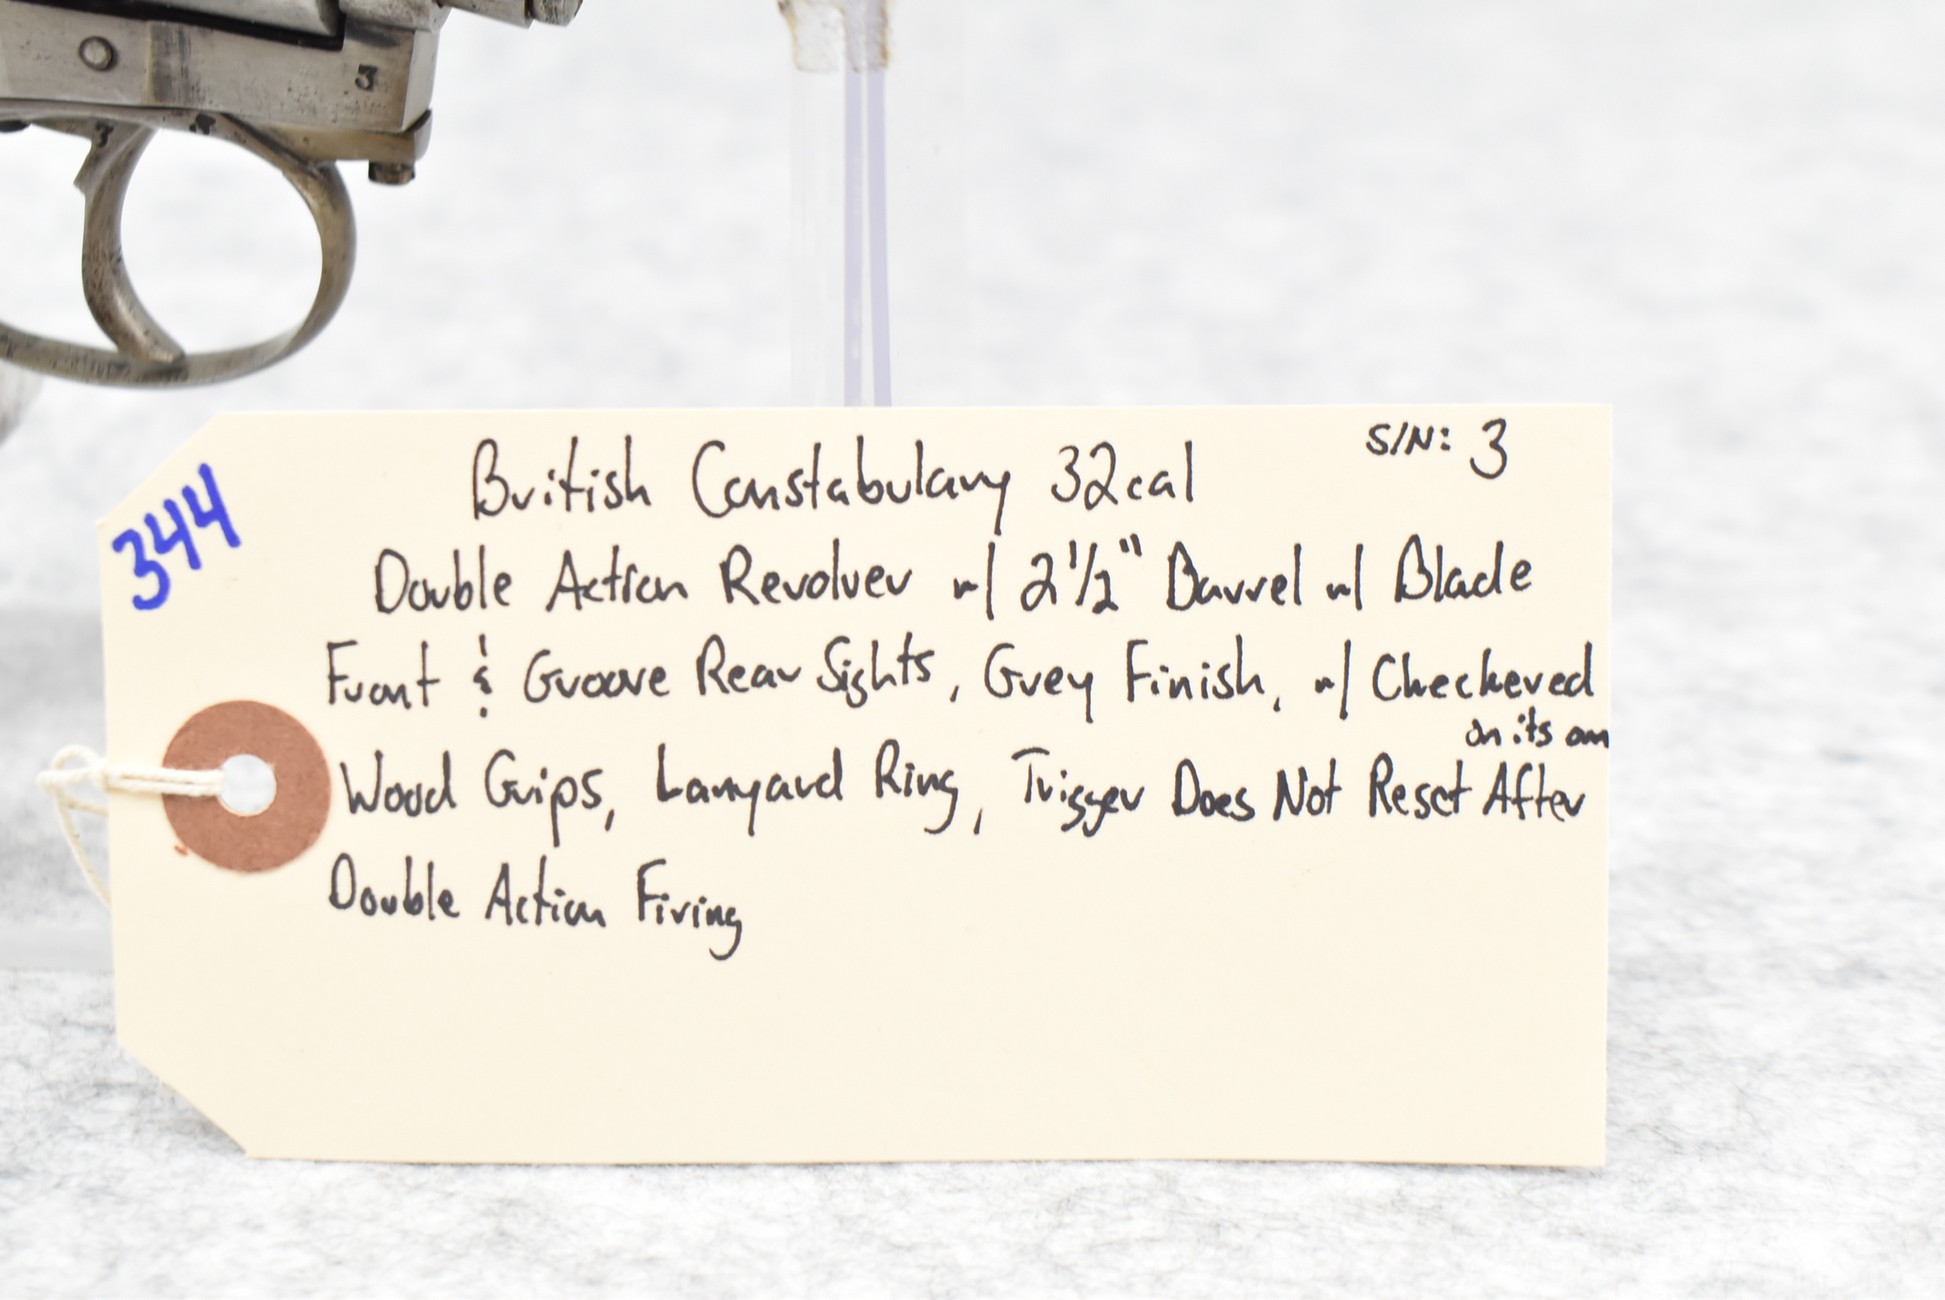 3
3
S/N: 3
344
British Constabulary 32cal
Double Action Revolver w/ 2 1/2" Barrel w/ Blade
Front & Groove Rear Sights, Grey Finish, w/ Checkered
on its own
Wood Grips, Lanyard Ring, Trigger Does Not Reset After
Double Action Firing